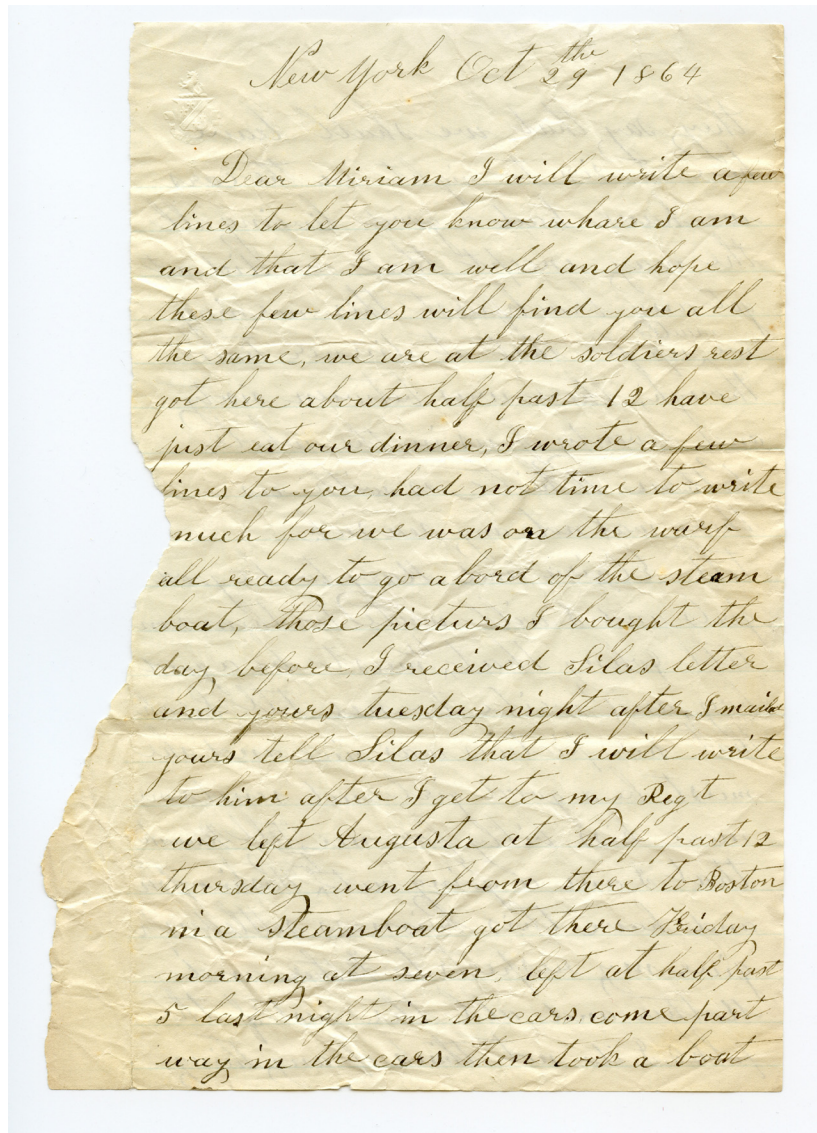 New York Oct 29th 1864
Dear Miriam I will write a few
lines to let you know whare I am
and that I am well and hope
these few lines will find you all
the same, we are at the soldiers rest
got here about half past 12 have
just eat our dinner, I wrote a few
lines to you, had not time to write
much for we was on the warf
all ready to go abord of the steam
boat, those picturs I bought the
day before, I received Silas letter
and yours tuesday night after I mailed
yours tell Silas that I will write
to him after I get to my Regt
we left Augusta at half past 12
thursday went from there to Boston
in a steamboat got there Friday
morning at seven, left at half past
5 last night in the cars come part
way in the cars then took a boat